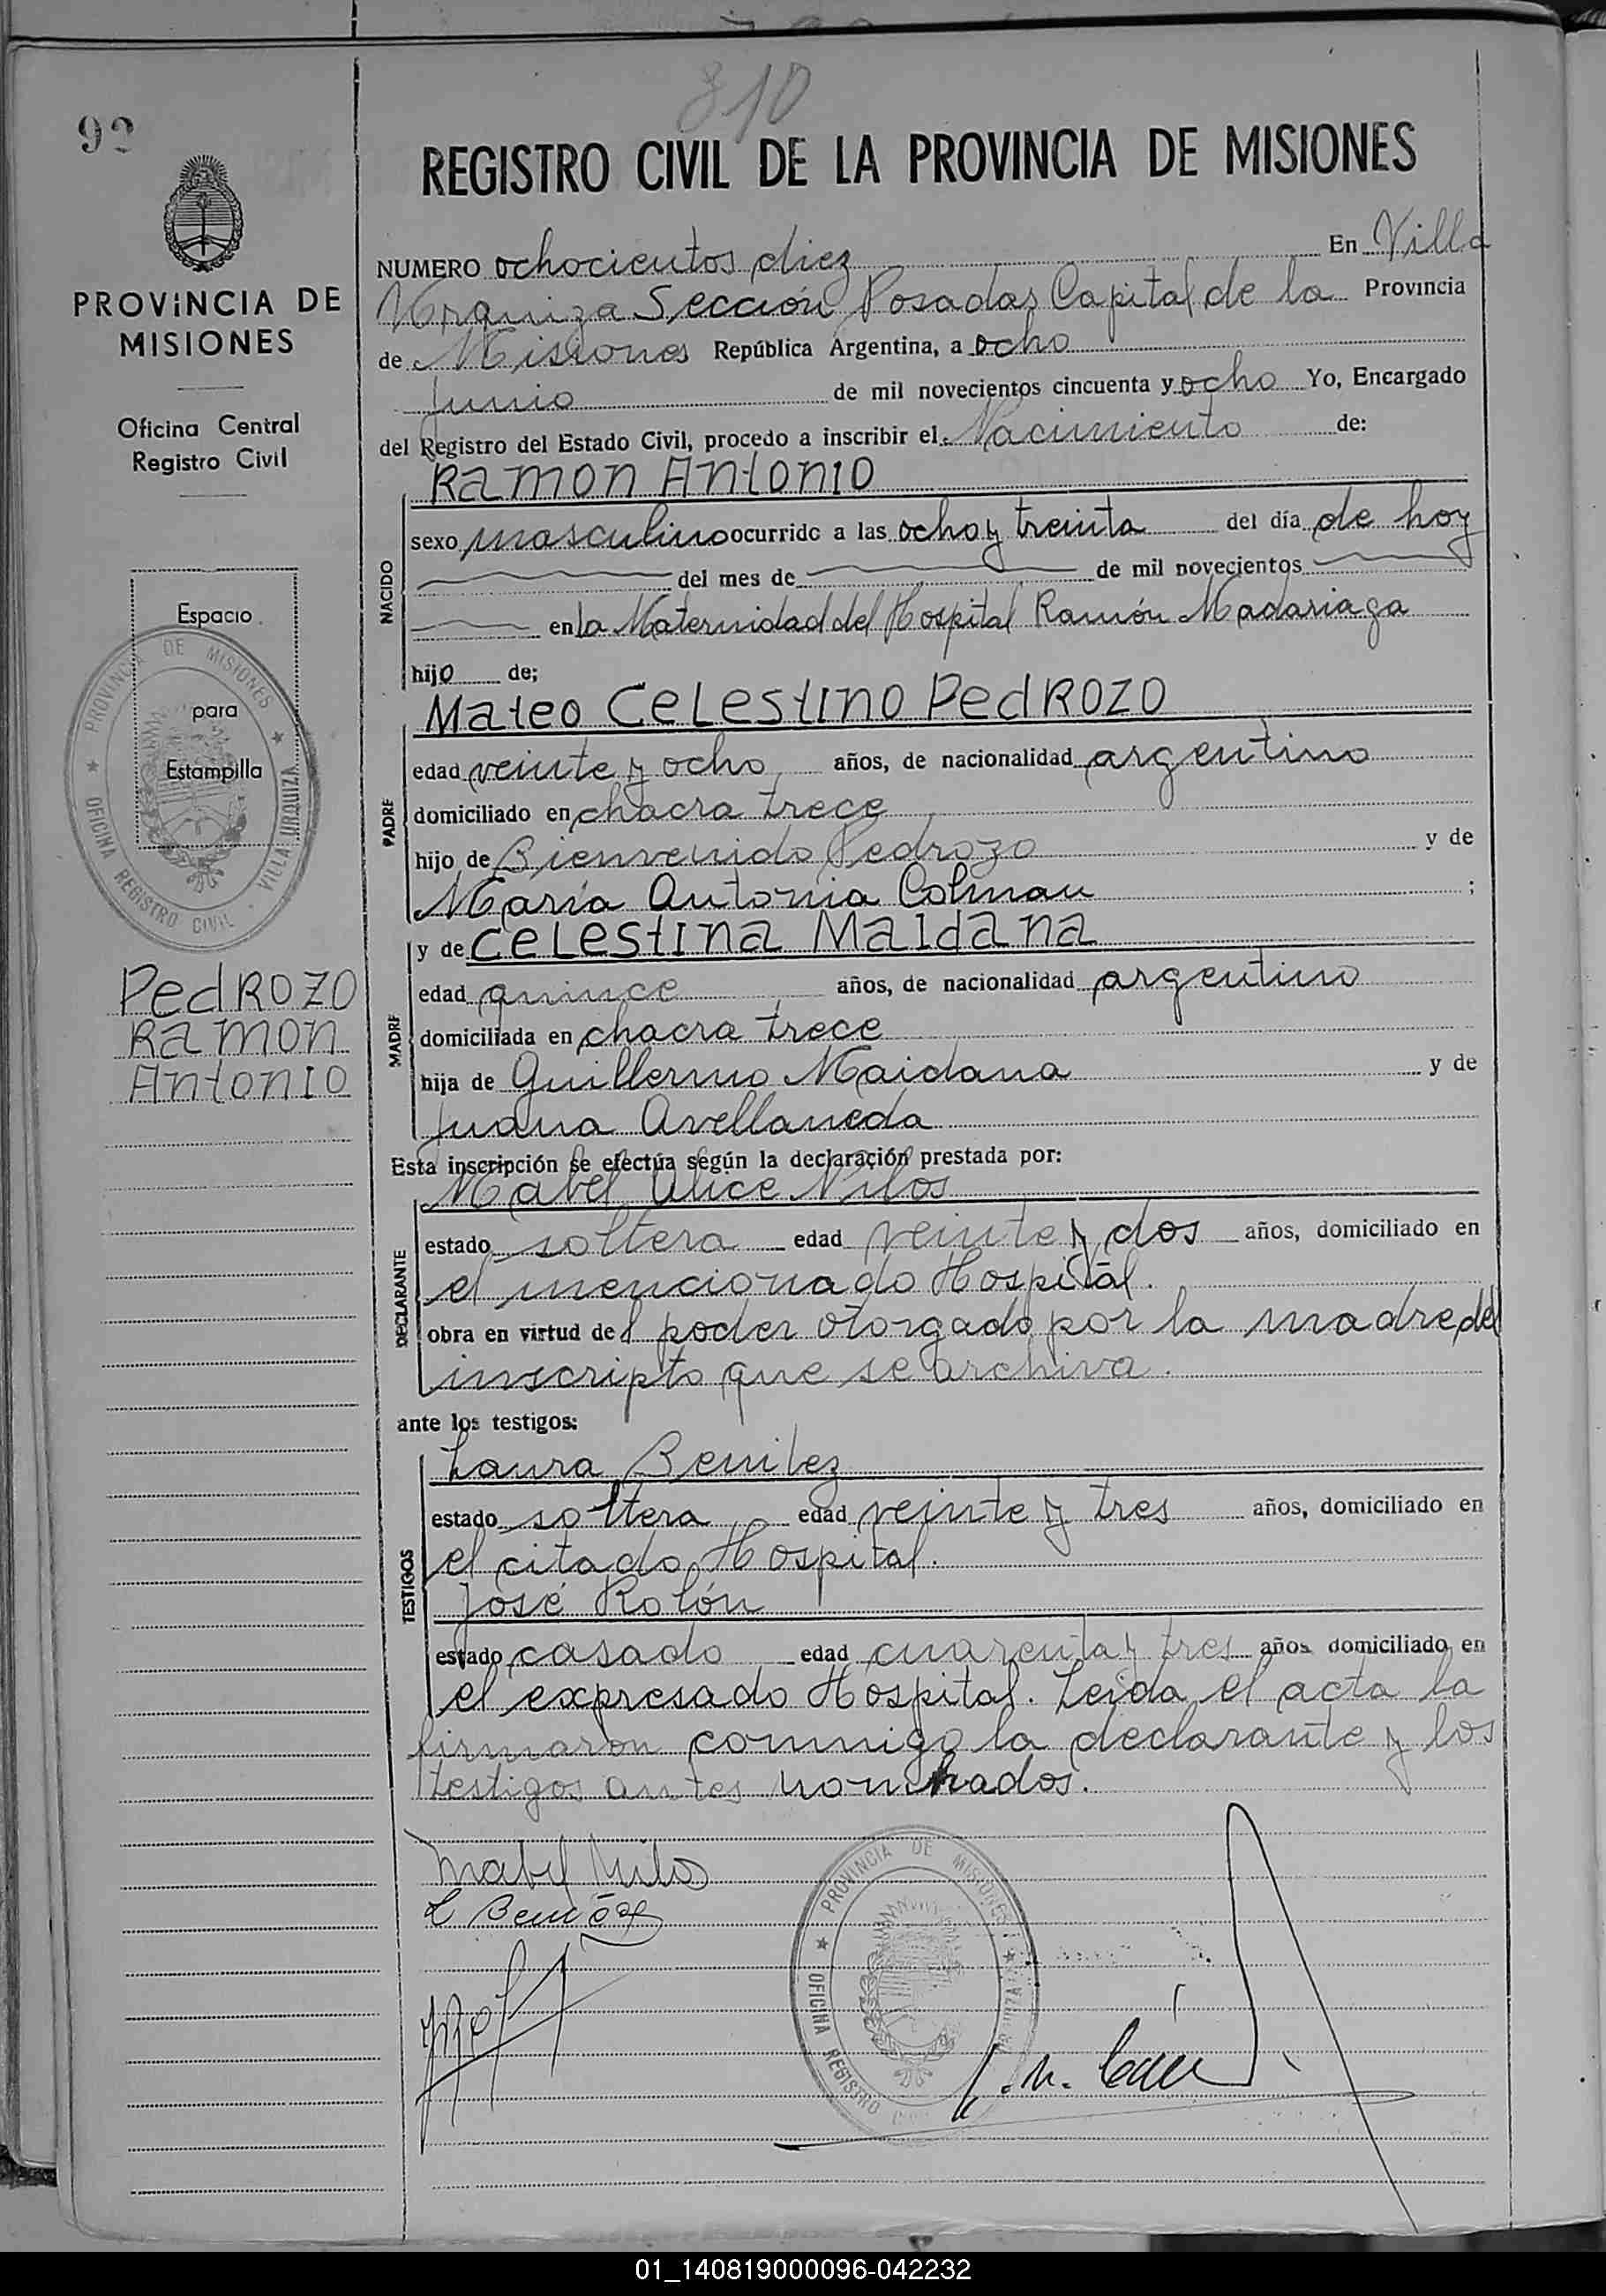 810
92
REGISTRO CIVIL DE LA PROVINCIA DE MISIONES
PROVINCIA DE
MISIONES
Oficina Central
Registro Civil
Espacio
para
Estampilla
PROVINCIA DE MISIONES
OFICINA REGISTRO CIVIL - VILLA URQUIZA
PedROZO
RamON
ANtONIO
NUMERO ochocientos diez En Villa
Urquiza Sección Posadas Capital de la Provincia
de Misiones República Argentina, a ocho
Junio de mil novecientos cincuenta y ocho Yo, Encargado
del Registro del Estado Civil, procedo a inscribir el Nacimiento de:
RamON ANtONIO
NACIDO
sexo masculino ocurrido a las ocho y treinta del día de hoy
del mes de de mil novecientos
en la Maternidad del Hospital Ramón Madariaga
hijo de;
Mateo Celestino PedROZO
PADRE
edad veinte y ocho años, de nacionalidad argentino
domiciliado en chacra trece
hijo de Bienvenido Pedrozo y de
María Antonia Colman ;
y de Celestina Maidana
MADRE
edad quince años, de nacionalidad argentino
domiciliada en chacra trece
hija de Guillermo Maidana y de
Juana Avellaneda
Esta inscripción se efectúa según la declaración prestada por:
Mabel Alice Nilos
DECLARANTE
estado soltera edad veinte y dos años, domiciliado en
el mencionado Hospital.
obra en virtud del poder otorgado por la madre del
inscripto que se archiva.
ante los testigos:
Laura Benitez
TESTIGOS
estado soltera edad veinte y tres años, domiciliado en
el citado Hospital.
José Rolón
estado casado edad cuarenta y tres años domiciliado en
el expresado Hospital. Leida el acta la
firmaron conmigo la declarante y los
testigos antes nombrados.
Mabel Nilos
L Benitez
PROVINCIA DE MISIONES
OFICINA REGISTRO
01_140819000096-042232